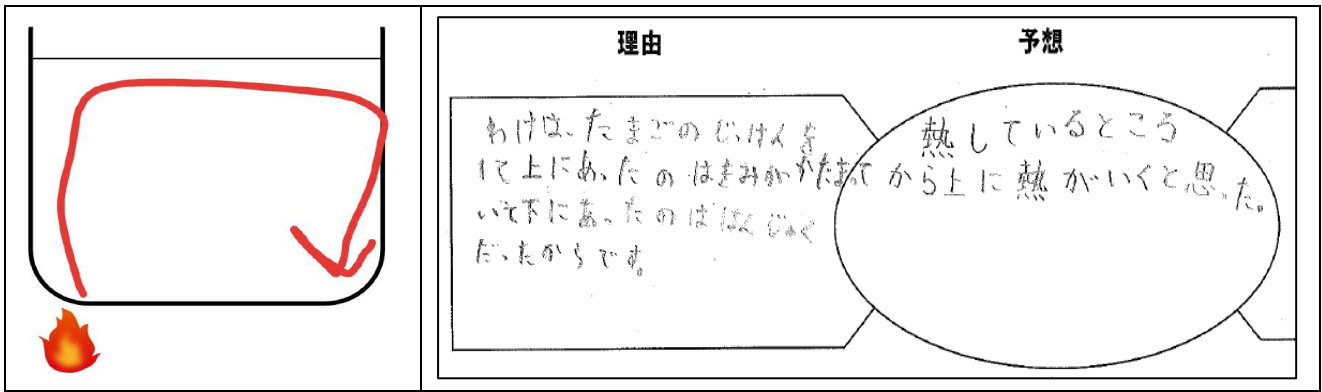 理由
わけは、たまごのじっけんを
して上にあったのはきみがかたまって
いて下にあったのははんじゅく
だったからです。
予想
熱しているところ
から上に熱がいくと思った。